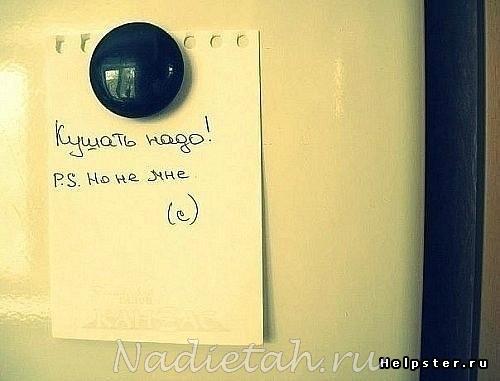 Кушать надо!
P.S. Но не мне
(с)
Nadietah.ru
Helpster.ru